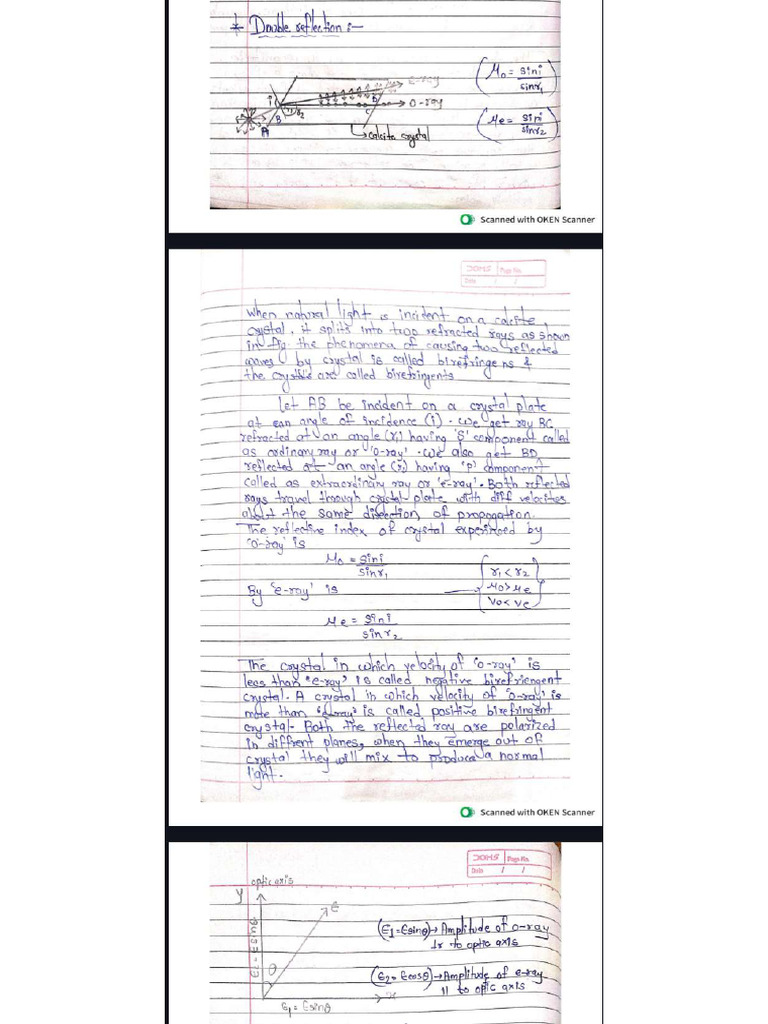 * Double reflection :-
E-ray
O-ray
i
r1
r2
A
B
C
D
calcite crystal
(μo = sini / sinr1)
(μe = sini / sinr2)
Scanned with OKEN Scanner
DOMS Page No.
Date / /
When natural light is incident on a calcite
crystal, it splits into two refracted rays as shown
in fig. the phenomena of causing two reflected
waves by crystal is called birefringens &
the crystals are called birefringents
Let AB be incident on a crystal plate
at an angle of incidence (i). We get ray BC
refracted at an angle (r1) having 'S' component called
as ordinary ray or 'o-ray'. We also get BD
reflected at an angle (r2) having 'p' component
called as extraordinary ray or 'e-ray'. Both reflected
rays travel through crystal plate with diff velocites
about the same disection of propogation.
The reflective index of crystal experinced by
'o-ray' is
μo = sini / sinr1
r1 < r2
By 'e-ray' is
μo > μe
vo < ve
μe = sini / sinr2
The crystal in which velocity of 'o-ray' is
less than 'e-ray' is called negative birefriengent
crystal. A crystal in which velocity of 'o-ray' is
more than 'e-ray' is called positive birefringent
crystal. Both the reflected ray are polarized
in diffrent planes, when they emerge out of
crystal they will mix to produce a normal
light.
Scanned with OKEN Scanner
DOMS Page No.
Date / /
optic axis
y
E
(E1=Esinθ)→Amplitude of o-ray
⊥r to optic axis
θ
(E2=Ecosθ)→Amplitude of e-ray
|| to optic axis
x
E1 = Esinθ